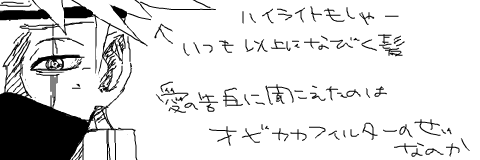 ハイライトもしゃー
いつも以上になびく髪
愛の告白に聞こえたのは
オビカカフィルターのせい
なのか